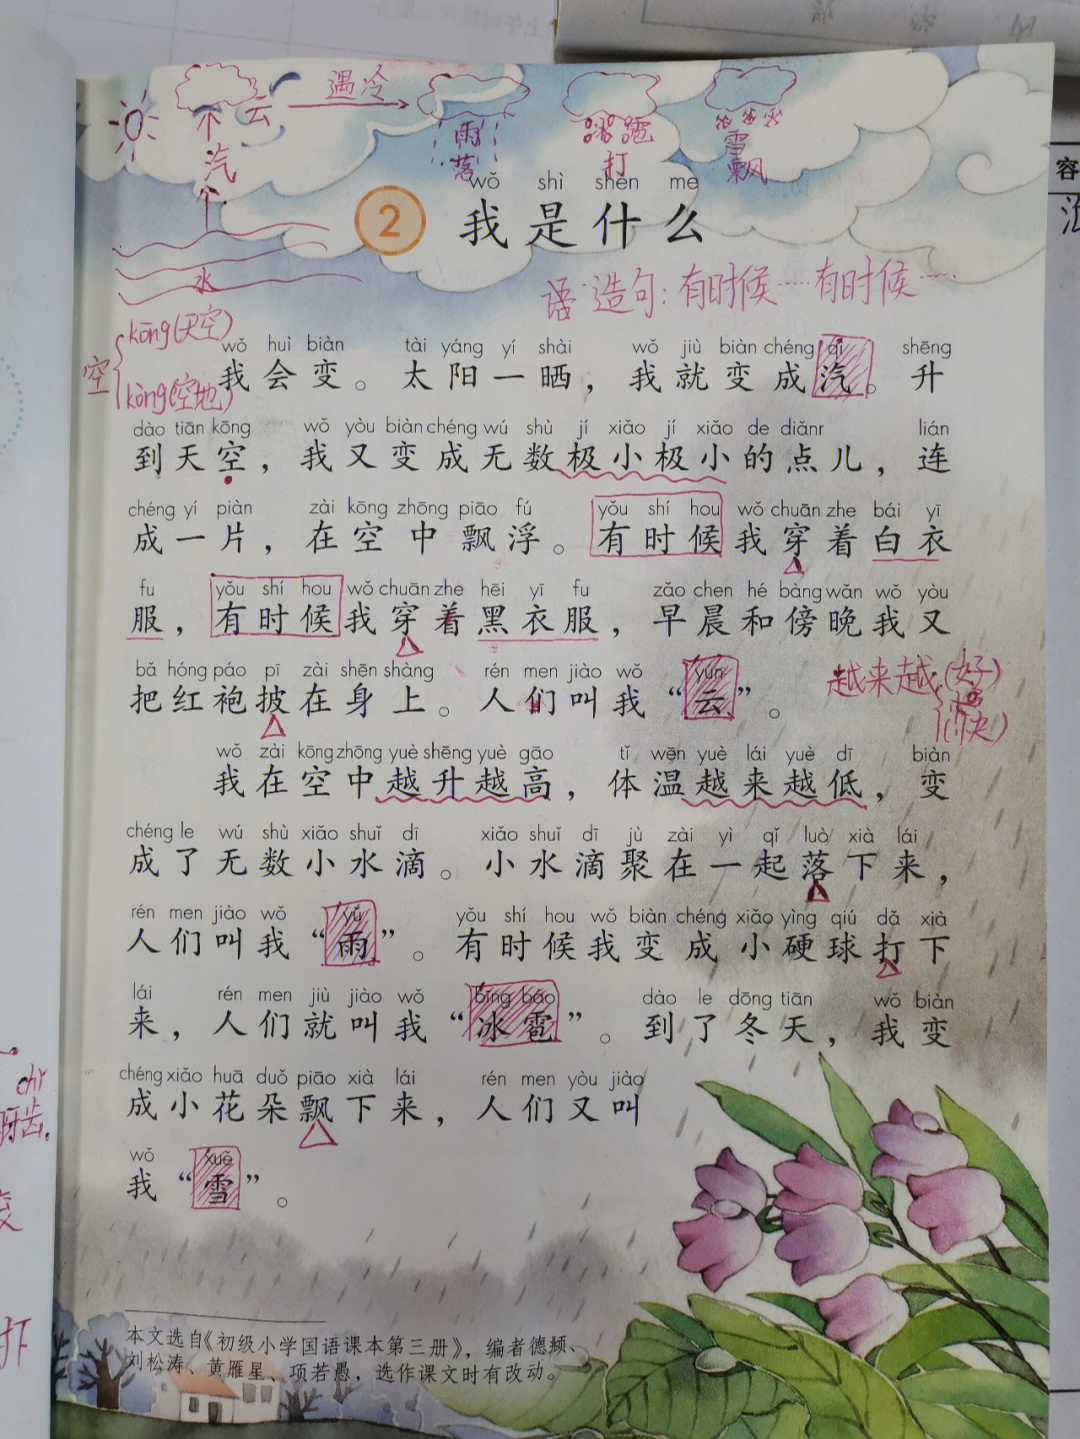 遇冷
云
个
汽
个
水
雨
落
冰雹
打
雪
飘
wǒ shì shén me
2 我是什么
语·造句:有时候……有时候……
空
kōng(天空)
kòng(空地)
wǒ huì biàn tài yáng yí shài wǒ jiù biàn chéng qì shēng
我会变。太阳一晒,我就变成汽。升
dào tiān kōng wǒ yòu biàn chéng wú shù jí xiǎo jí xiǎo de diǎnr lián
到天空,我又变成无数极小极小的点儿,连
chéng yí piàn zài kōng zhōng piāo fú yǒu shí hou wǒ chuān zhe bái yī
成一片,在空中飘浮。有时候我穿着白衣
fu yǒu shí hou wǒ chuān zhe hēi yī fu zǎo chen hé bàng wǎn wǒ yòu
服,有时候我穿着黑衣服,早晨和傍晚我又
bǎ hóng páo pī zài shēn shàng rén men jiào wǒ yún
把红袍披在身上。人们叫我“云”。
越来越(好)
(慢)
(快)
wǒ zài kōng zhōng yuè shēng yuè gāo tǐ wēn yuè lái yuè dī biàn
我在空中越升越高,体温越来越低,变
chéng le wú shù xiǎo shuǐ dī xiǎo shuǐ dī jù zài yì qǐ luò xià lái
成了无数小水滴。小水滴聚在一起落下来,
rén men jiào wǒ yǔ yǒu shí hou wǒ biàn chéng xiǎo yìng qiú dǎ xià
人们叫我“雨”。有时候我变成小硬球打下
lái rén men jiù jiào wǒ bīng báo dào le dōng tiān wǒ biàn
来,人们就叫我“冰雹”。到了冬天,我变
chéng xiǎo huā duǒ piāo xià lái rén men yòu jiào
成小花朵飘下来,人们又叫
wǒ xuě
我“雪”。
本文选自《初级小学国语课本第三册》,编者德颖、
刘松涛、黄雁星、项若愚,选作课文时有改动。
容